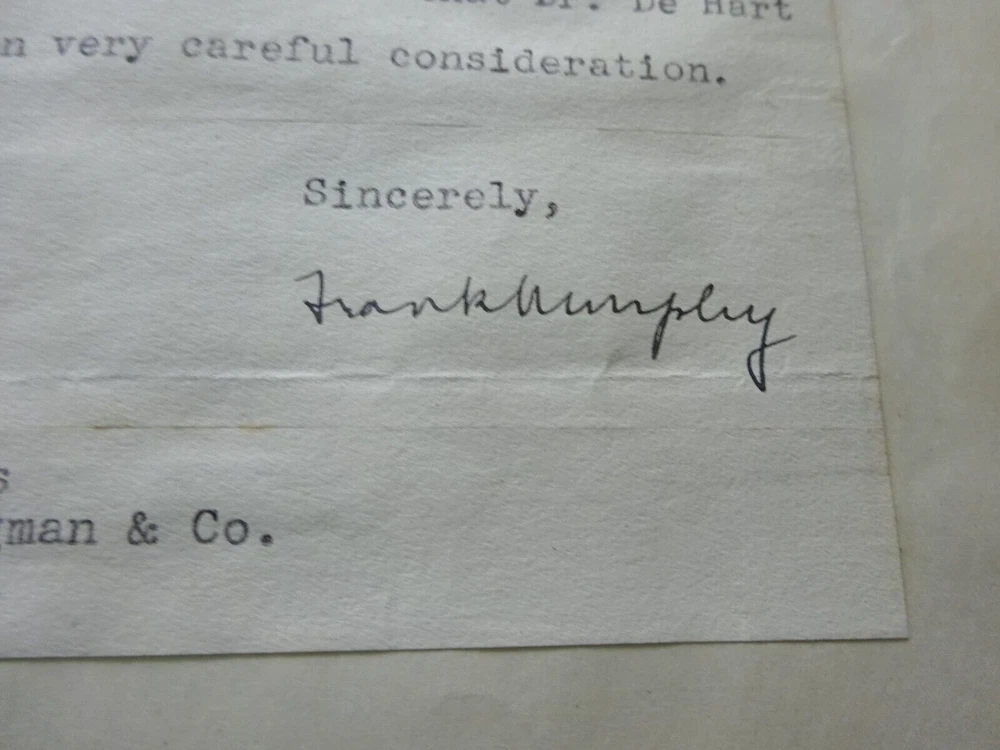 Dr. De Hart
n very careful consideration.
Sincerely,
Frank Murphy
s
man & Co.